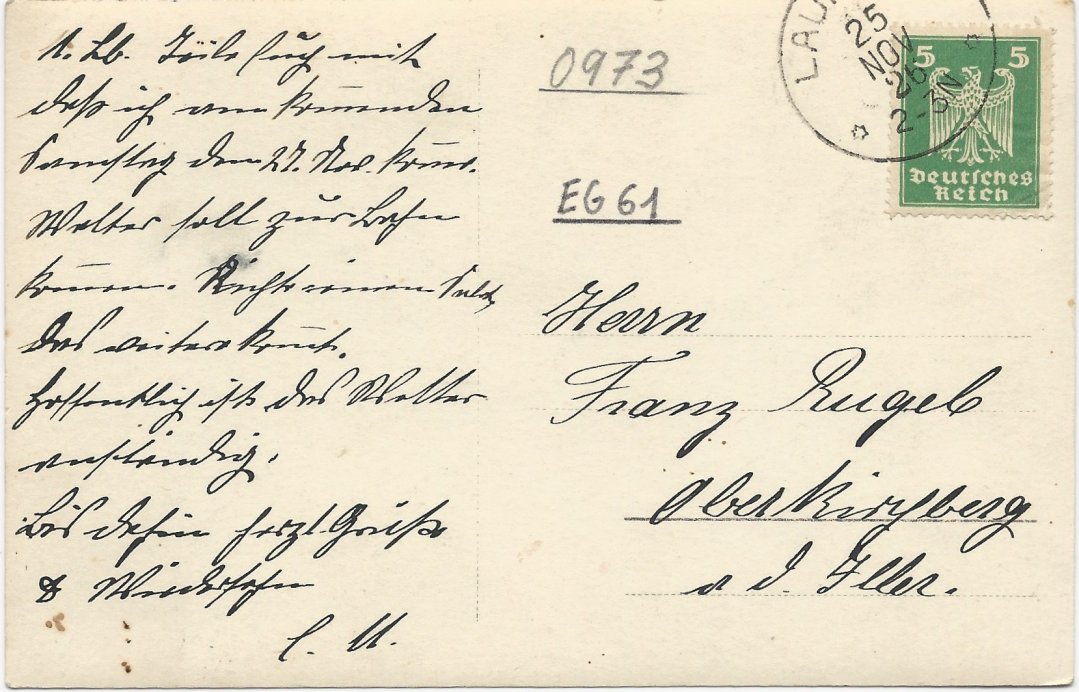 M. Lb. Teile Euch mit
daß ich am kommenden
Samstag den 27. Nov. komme.
Walter soll zur Bahn
kommen. Richte einen
das weitere kommt.
Hoffentlich ist das Wetter
anständig.
Bis dahin herzl. Grüße
& Wiedersehn
0973
EG 61
LAU
25
NOV
26
2-3N
5 5
Deutsches
Reich
Herrn
Franz Rugel
Oberkirchberg
a d. Iller.